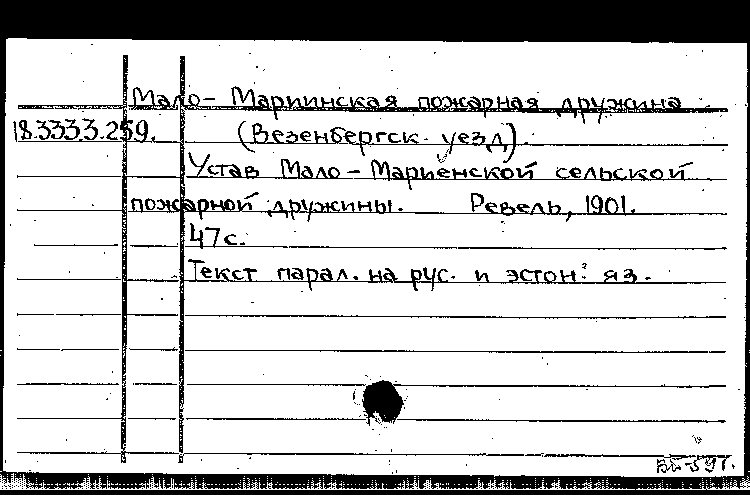 Мало-Мариинская пожарная дружина
18.333.3.259. (Везенбергск. уезд).
Устав Мало-Мариенской сельской
пожарной дружины. Ревель, 1901.
47с.
Текст парал. на рус. и эстон. яз.